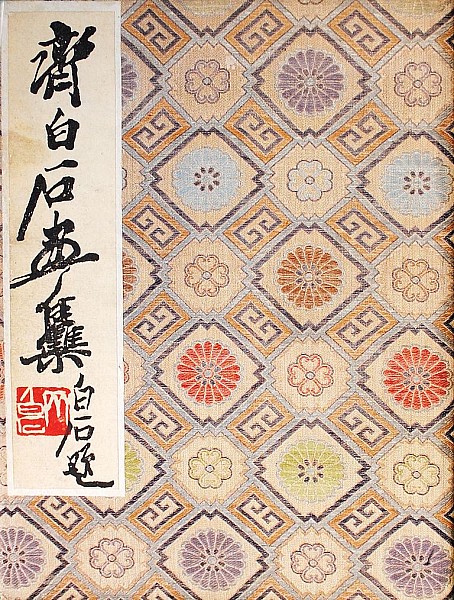 齊白石画集
白石题
白石